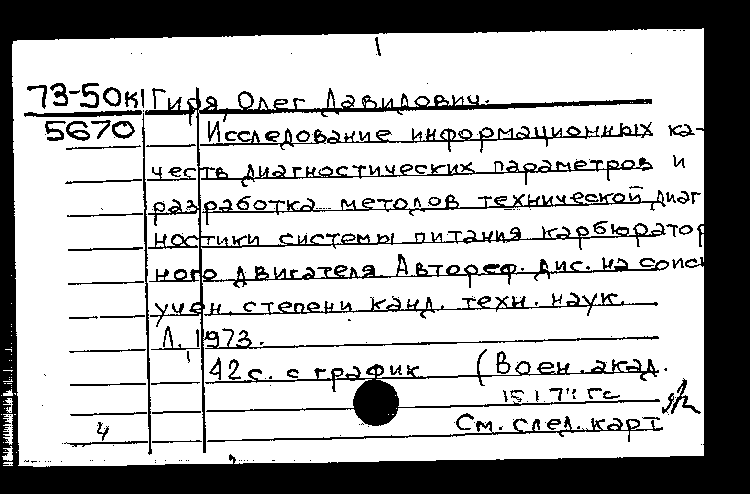 1
73-50к Гиря, Олег Давидович.
5670 Исследование информационных ка-
честв диагностических параметров и
разработка методов технической диаг
ностики системы питания карбюратор
ного двигателя. Автореф. дис. на соиск
учен. степени канд. техн. наук.
Л., 1973.
42 с. с график (Воен. акад.
См. след. карт
4